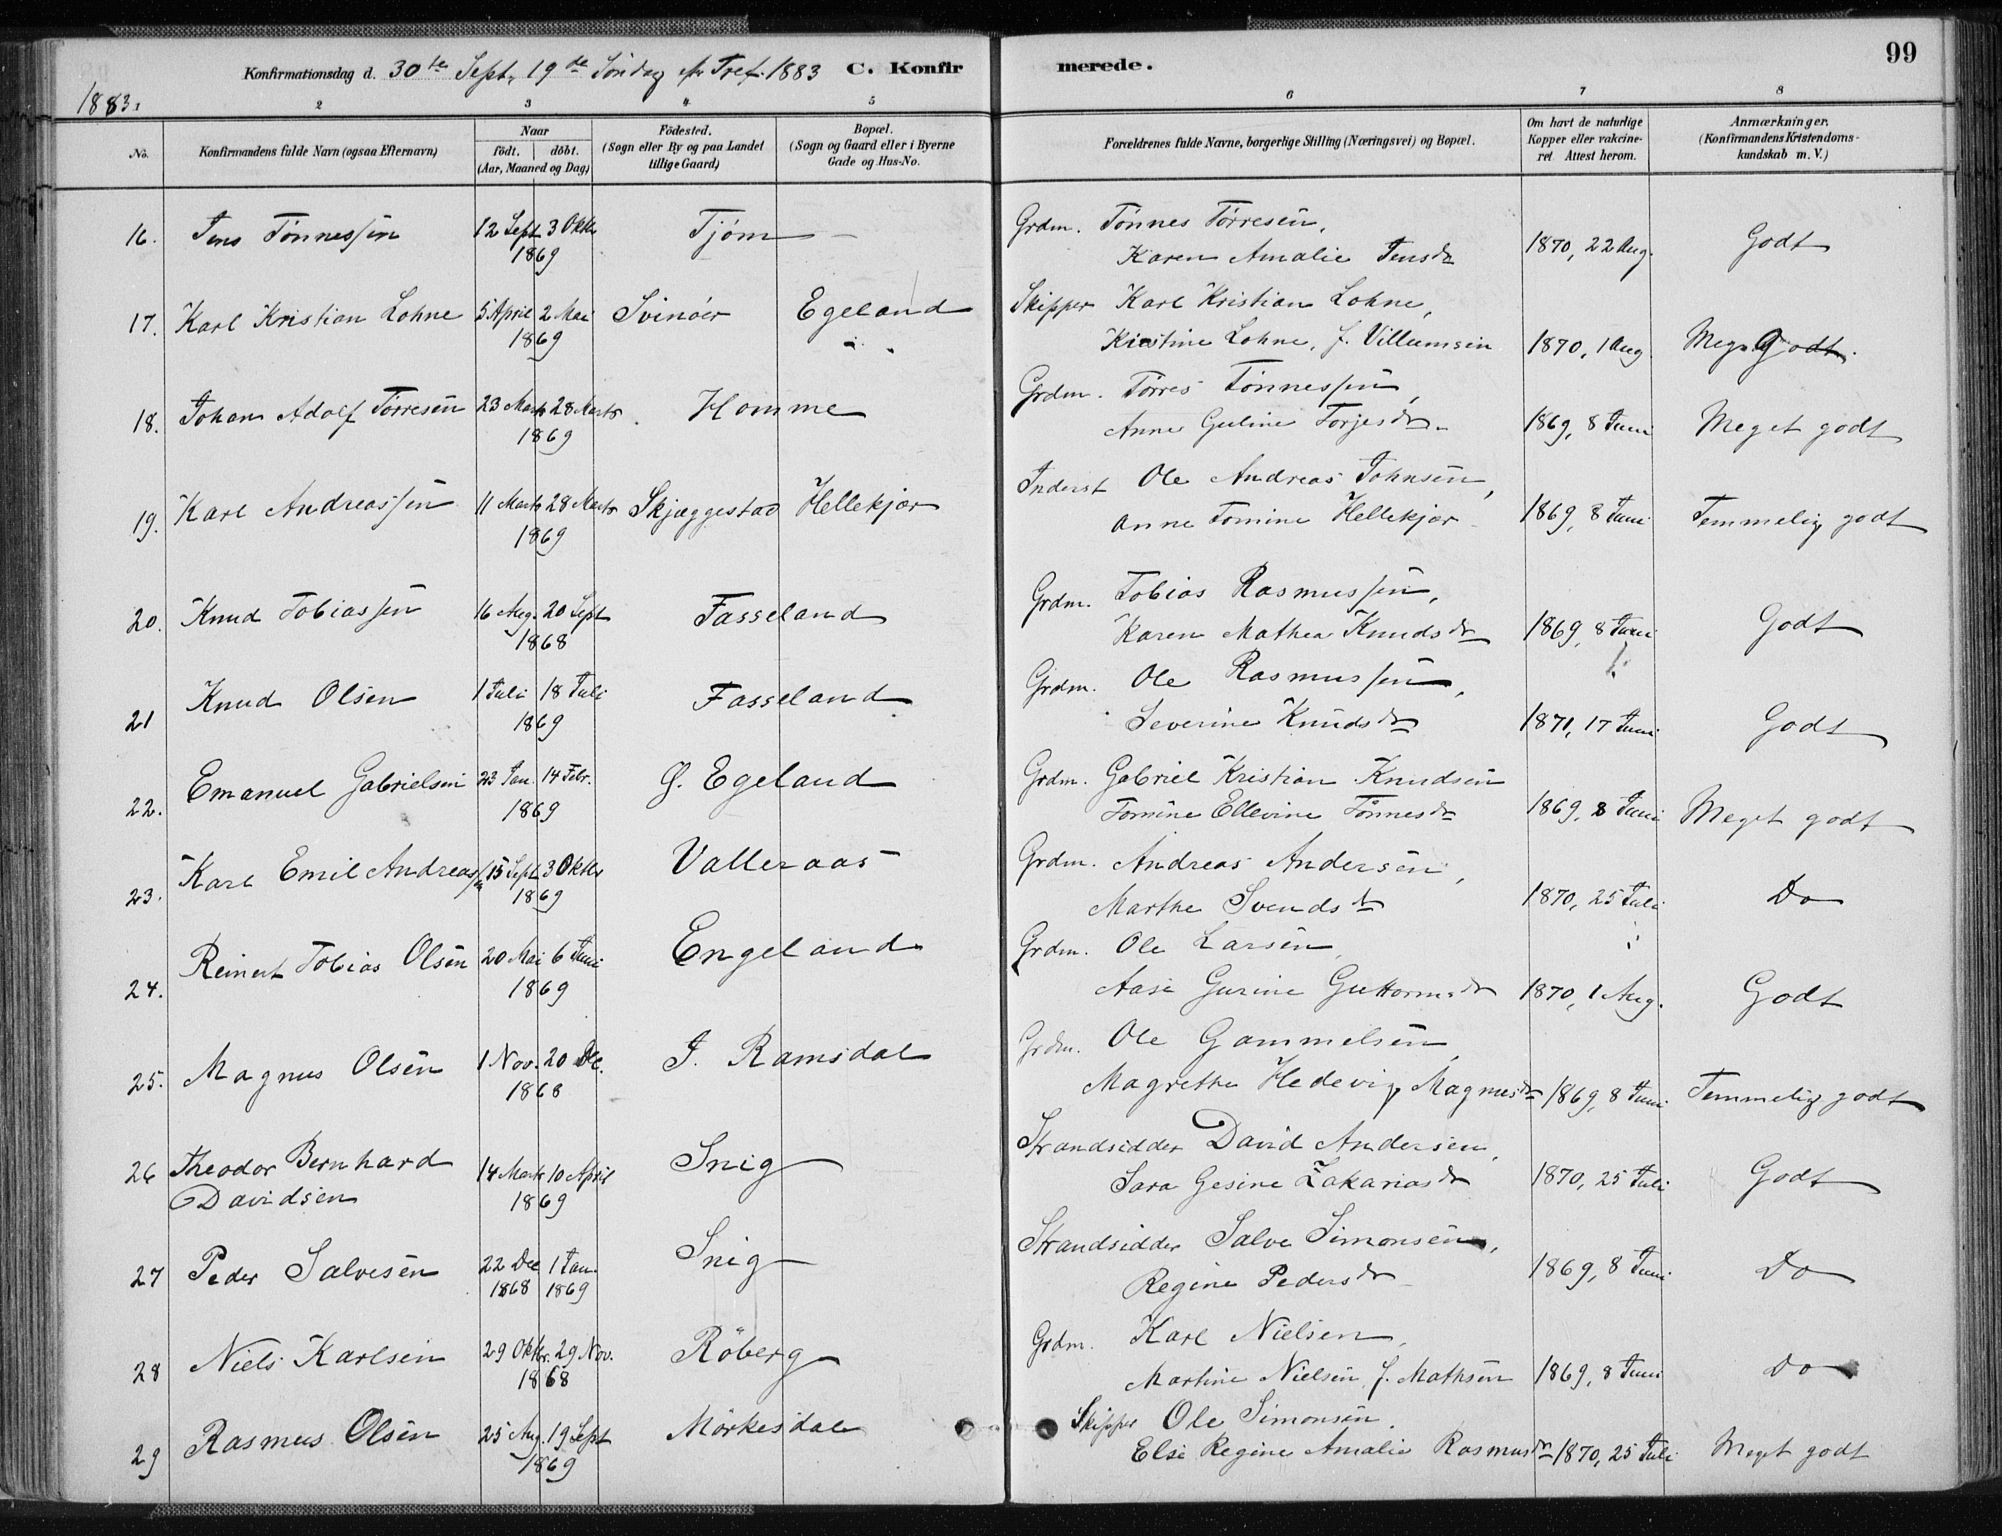 Konfirmationsdag d. 30te Sept, 19de Søndag eft Tref. 1883 C. Konfirmerede. 99
1883,
2 3 4 5 6 7 8
No. Konfirmandens fulde Navn (ogsaa Efternavn) Naar födt. döbt. (Aar, Maaned og Dag) Födested. (Sogn eller By og paa Landet tillige Gaard) Bopæl. (Sogn og Gaard eller i Byerne Gade og Hus-No. Forældrenes fulde Navne, borgerlige Stilling (Næringsvei) og Bopæl. Om havt de naturlige Kopper eller vakcineret. Attest herom. Anmærkninger. (Konfirmandens Kristendomskundskab m. V.)
16. Jens Tønnessen 12 Sept 3 Oktbr 1869 Tjøm Grdm. Tønnes Tørresen,
Karen Amalie Jensdr 1870, 22 Aug. Godt
17. Karl Kristian Lohne 5 April 2 Mai 1869 Svinöer Egeland Skipper Karl Kristian Lohne,
Kirstine Lohne, f. Villumsen 1870, 1 Aug. Meget Godt.
18. Johan Adolf Tørresen 23 Marts 28 Marts 1869 Homme Grdm. Tørres Tønnessen,
Anne Guline Torjesdr 1869, 8 Juni Meget godt
19. Karl Andreassen 11 Marts 28 Marts 1869 Skjæggestad Hellekjær Inderst Ole Andreas Johnsen,
Anne Tomine Hellekjær 1869, 8 Juni Temmelig godt
20. Knud Tobiassen 16 Aug. 20 Sept 1868 Fasseland Grdm. Tobias Rasmussen,
Karen Mathea Knudsdr 1869, 8 Juni Godt
21 Knud Olsen 1 Juli 18 Juli 1869 Fasseland Grdm. Ole Rasmussen,
Severine Knudsdr 1871, 17 Juni Godt
22. Emanuel Gabrielsen 23 Jan. 14 Febr. 1869 G. Egeland Grdm. Gabriel Kristian Knudsen
Tomine Ellevine Tønnesdr 1869, 8 Juni Meget godt
23. Karl Emil Andreassen 15 Sept 3 Oktbr 1869 Valleraas Grdm. Andreas Andersen,
Marthe Svendsdr 1870, 25 Juli Do
24. Reinert Tobias Olsen 20 Mai 6 Juni 1869 Engeland Grdm. Ole Larsen,
Aase Gurine Guttormsdr 1870, 1 Aug. Godt
25. Magnus Olsen 1 Nov. 20 Dec. 1868 I. Ramsdal Grdm. Ole Gammelsen,
Magrethe Hedevig Magnusdr 1869, 8 Juni Temmelig godt
26 Theodor Bernhard Davidsen 14 Marts 10 April 1869 Snig Strandsidder David Andersen,
Sara Gesine Zakariasdr 1870, 25 Juli Godt
27 Peder Salvesen 22 Dec 1868 1 Jan. 1869 Snig Strandsidder Salve Simonsen,
Regine Pedersdr 1869, 8 Juni Do
28 Niels Karlsen 29 Oktbr. 29 Nov. 1868 Röberg Grdm. Karl Nielsen,
Martine Nielsen, f. Mathsen 1869, 8 Juni Do
29 Rasmus Olsen 25 Aug. 19 Sept 1869 Mörkesdal Skipper Ole Simonsen.
Else Regine Amalie Rasmusdr 1870, 25 Juli Meget godt